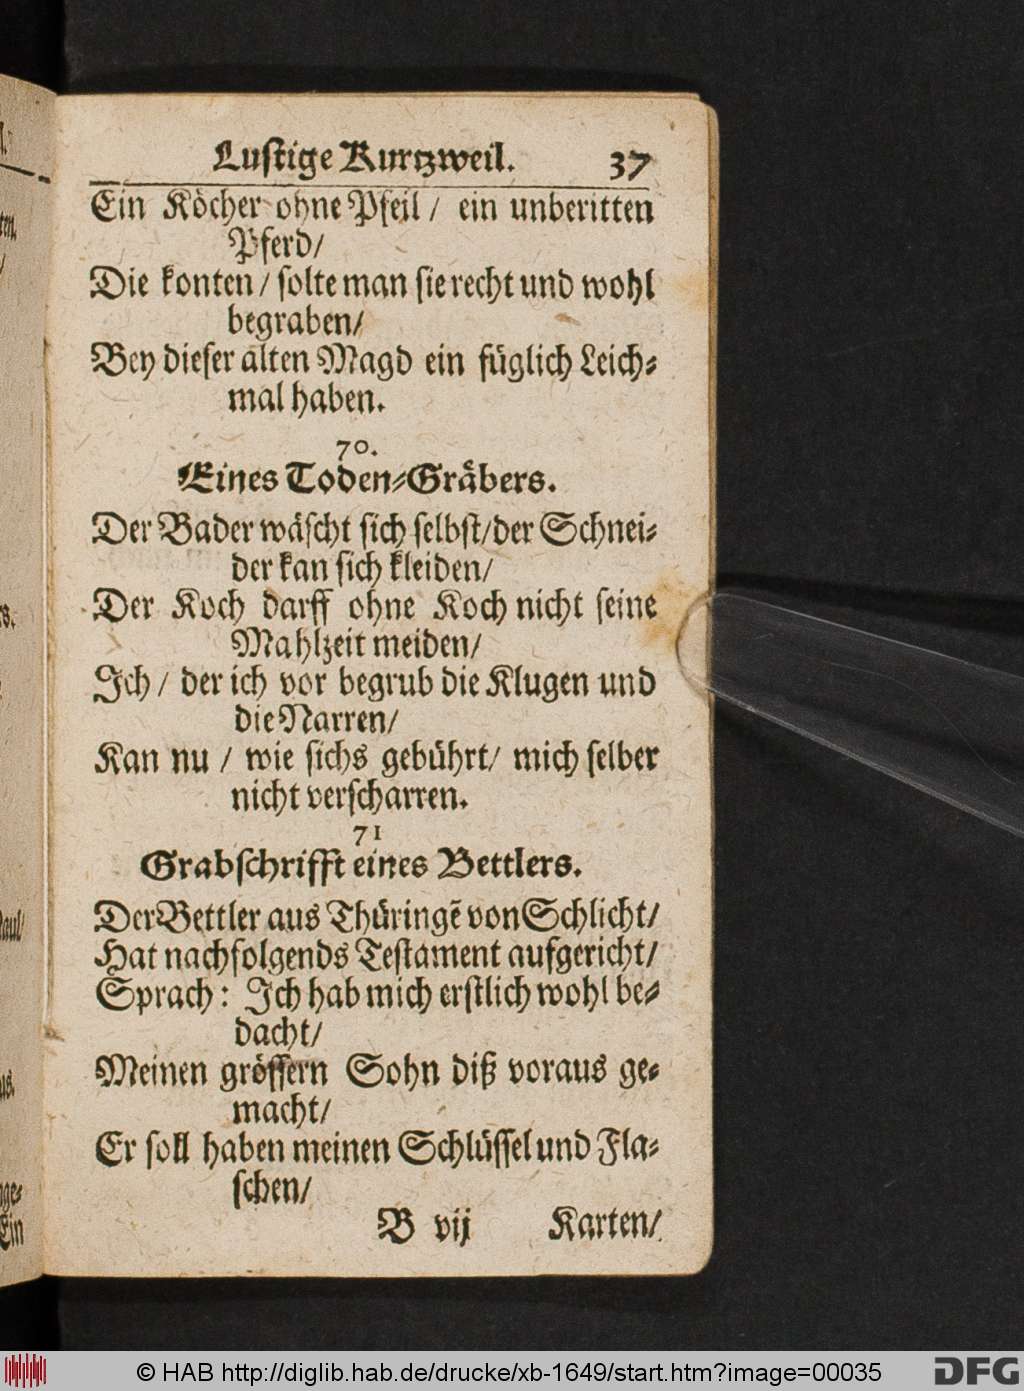 Lustige Kurtzweil. 37
Ein Köcher ohne Pfeil / ein unberitten
Pferd/
Die konten / solte man sie recht und wohl
begraben/
Bey dieser alten Magd ein füglich Leich-
mal haben.
70.
Eines Toden-Gräbers.
Der Bader wäscht sich selbst/der Schnei-
der kan sich kleiden/
Der Koch darff ohne Koch nicht seine
Mahlzeit meiden/
Ich / der ich vor begrub die Klugen und
die Narren/
Kan nu / wie sichs gebührt/ mich selber
nicht verscharren.
71
Grabschrifft eines Bettlers.
Der Bettler aus Thüringẽ von Schlicht/
Hat nachfolgends Testament aufgericht/
Sprach: Ich hab mich erstlich wohl be-
dacht/
Meinen grössern Sohn diß voraus ge-
macht/
Er soll haben meinen Schlüssel und Fla-
schen/
B vij Karten/
© HAB http://diglib.hab.de/drucke/xb-1649/start.htm?image=00035
DFG